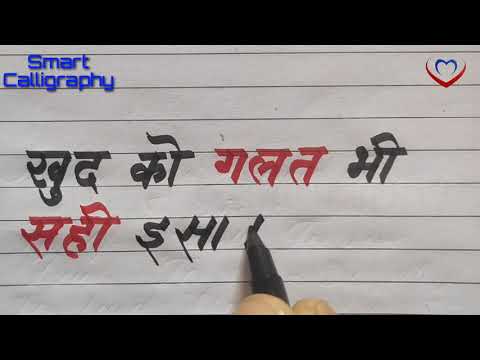 Smart
Calligraphy
खुद को गलत भी
सही इसा